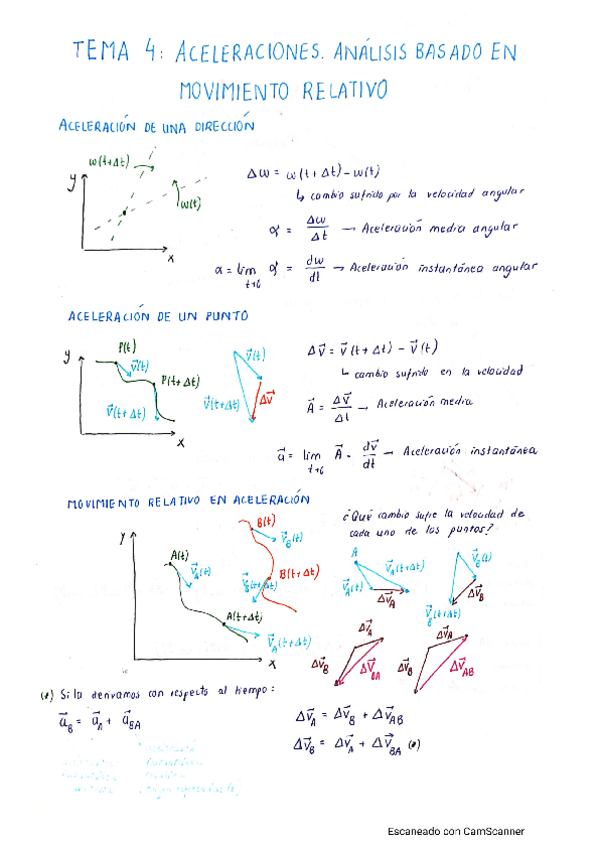 TEMA 4: ACELERACIONES. ANÁLISIS BASADO EN
MOVIMIENTO RELATIVO
ACELERACIÓN DE UNA DIRECCIÓN
w(t+Δt)
y
w(t)
x
Δw = w(t+Δt) - w(t)
↳ cambio sufrido por la velocidad angular
α = Δw/Δt → Aceleración media angular
α = lim α = dw/dt → Aceleración instantánea angular
t→0
ACELERACIÓN DE UN PUNTO
y
P(t)
v⃗(t)
P(t+Δt)
v⃗(t+Δt)
x
v⃗(t)
v⃗(t+Δt)
Δv⃗
Δv⃗ = v⃗(t+Δt) - v⃗(t)
↳ cambio sufrido en la velocidad
A⃗ = Δv⃗/Δt → Aceleración media
a⃗ = lim A⃗ = dv⃗/dt → Aceleración instantánea
t→0
MOVIMIENTO RELATIVO EN ACELERACIÓN
¿Qué cambio sufre la velocidad de
cada uno de los puntos?
y
A(t)
v⃗A(t)
B(t)
v⃗B(t)
B(t+Δt)
v⃗B(t+Δt)
A(t+Δt)
v⃗A(t+Δt)
x
A
v⃗A(t+Δt)
v⃗A(t)
Δv⃗A
v⃗B(t)
Δv⃗B
v⃗B(t+Δt)
Δv⃗A
Δv⃗B
Δv⃗BA
Δv⃗A
Δv⃗B
Δv⃗AB
(*) Si la derivamos con respecto al tiempo:
a⃗B = a⃗A + a⃗BA
Δv⃗A = Δv⃗B + Δv⃗AB
Δv⃗B = Δv⃗A + Δv⃗BA (*)
Escaneado con CamScanner